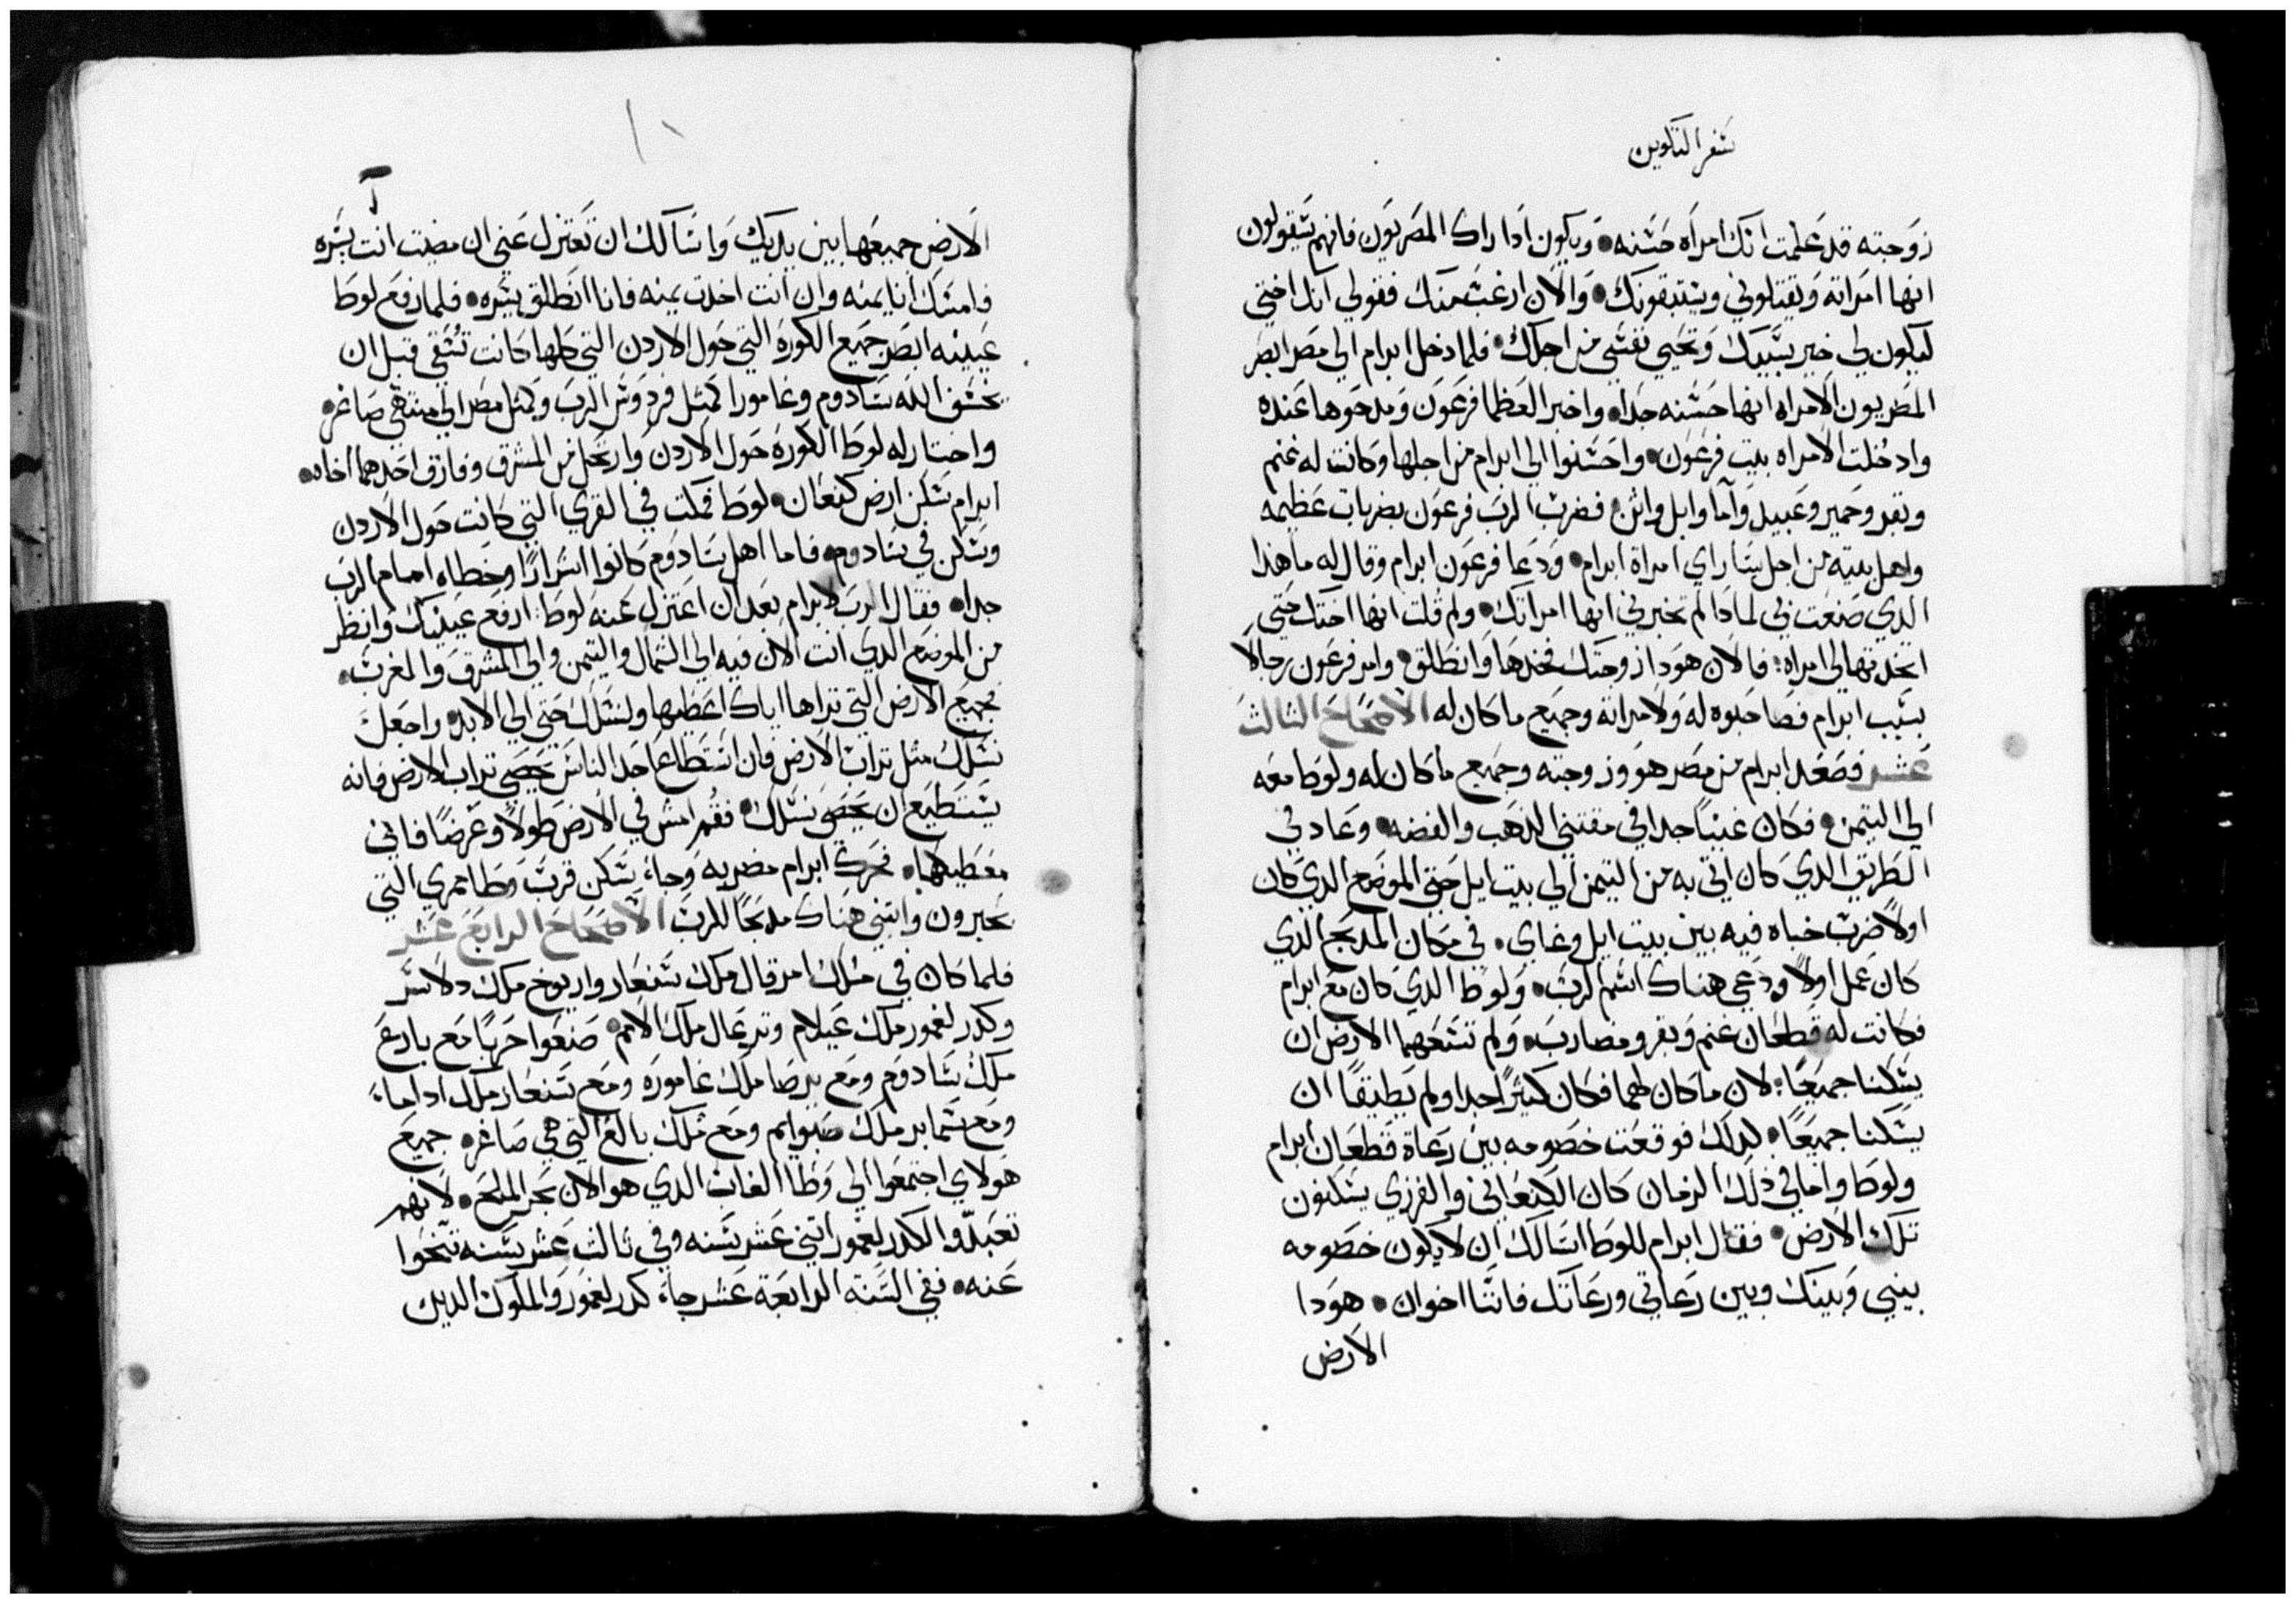 سفر التكوين
زوجته قد علمت انك امراه حسنه ويكون ادا راك المصريون فانهم سيقولون
انها امراته ويقتلوني ويستبقونك والان ارغب منك فقولي انك اختي
ليكون لي خير بسببك وتحيي نفسي من اجلك فلما دخل ابرام الي مصر ابصر
المصريون الامراه انها حسنه جدا واخبر العظما فرعون ومدحوها عنده
وادخلت الامراه بيت فرعون واحسنوا الي ابرام من اجلها وكانت له غنم
وبقر وحمير وعبيد وآما وابل واتن فضرب الرب فرعون بضربات عظيمه
واهل بيته من اجل ساراي امراة ابرام ودعا فرعون ابرام وقال له ما هذا
الدي صنعت بي لمادا لم تخبرني انها امراتك ولم قلت انها اختك حتي
اتخدتها لي امراه فالان هودا زوجتك فخدها وانطلق وامر فرعون رجالا
بسبب ابرام فصاحبوه له ولامراته وجميع ما كان له الاصحاح الثالث
عشر فصعد ابرام من مصر هو وزوجته وجميع ما كان له ولوط معه
الي التيمن فكان غنيا جدا في مقتني الدهب والفضه وعاد في
الطريق الدي كان اتي به من التيمن الي بيت ايل حتي الموضع الدي كان
اولا ضرب خباه فيه بين بيت ايل وغاي في مكان المدبح الدي
كان عمل اولا ودعي هناك اسم الرب ولوط الدي كان مع ابرام
فكانت له قطعان غنم وبقر ومضارب ولم تسعهما الارض ان
يسكنا جميعا لان ما كان لهما فكان كثيرا جدا ولم يطيقا ان
يسكنا جميعا لدلك فوقعت خصومه بين رعاة قطعان ابرام
ولوط واما في دلك الزمان كان الكنعاني والفرزي يسكنون
تلك الارض فقال ابرام للوط اسالك ان لا يكون خصومه
بيني وبينك وبين رعاتي ورعاتك فاننا اخوان هودا
الارض
١٠
الارض جميعها بين يديك واسالك ان تعتزل عني ان مضيت انت يسره
فامسك انا يمنه وان انت اخدت يمنه فانا انطلق يسره فلما رفع لوط
عينيه ابصر جميع الكوره التي حول الاردن التي كلها كانت تسقي قبل ان
يخسف الله سادوم وغامورا كمثل فردوس الرب وكمثل مصر الي منتهي صاغر
واختار له لوط الكوره حول الاردن وارتحل من المشرق وفارق احدهما اخاه
ابرام سكن ارض كنعان لوط فمكت في القري التي كانت حول الاردن
وسكن في سادوم فاما اهل سادوم كانوا اشرارا وخطاه امام الرب
جدا فقال الرب لابرام بعد ان اعتزل عنه لوط ارفع عينيك وانظر
من الموضع الدي انت الان فيه الي الشمال والتيمن والي المشرق والمغرب
فجميع الارض التي تراها اياك اعطيها ولنسلك حتي الي الابد واجعل
نسلك مثل تراب الارض فان استطاع احد الناس يحصي تراب الارض فانه
يستطيع ان يحصي نسلك فقم امش في الارض طولا وعرضا فاني
معطيكها فحرك ابرام مضربه وجاء يسكن قرب وطا ممري التي
بحبرون وابتني هناك مدبحا للرب الاصحاح الرابع عشر
فلما كان في ملك امرقال ملك سنعار واريوخ ملك دلاسر
وكدرلغمور ملك عيلام وتدعال ملك الامم صنعوا حربا مع بارع
ملك سادوم ومع برصا ملك غاموره ومع سنعار ملك اداما
ومع سمابر ملك صبوايم ومع ملك بالع التي هي صاغر جميع
هولاي اجتمعوا الي وطا الغاب الدي هو الان بحر الملح لانهم
تعبدوا لكدرلغمور اتني عشر سنه وفي تالت عشر سنه تنحوا
عنه ففي السنه الرابعة عشر جاء كدرلغمور والملوك الدين